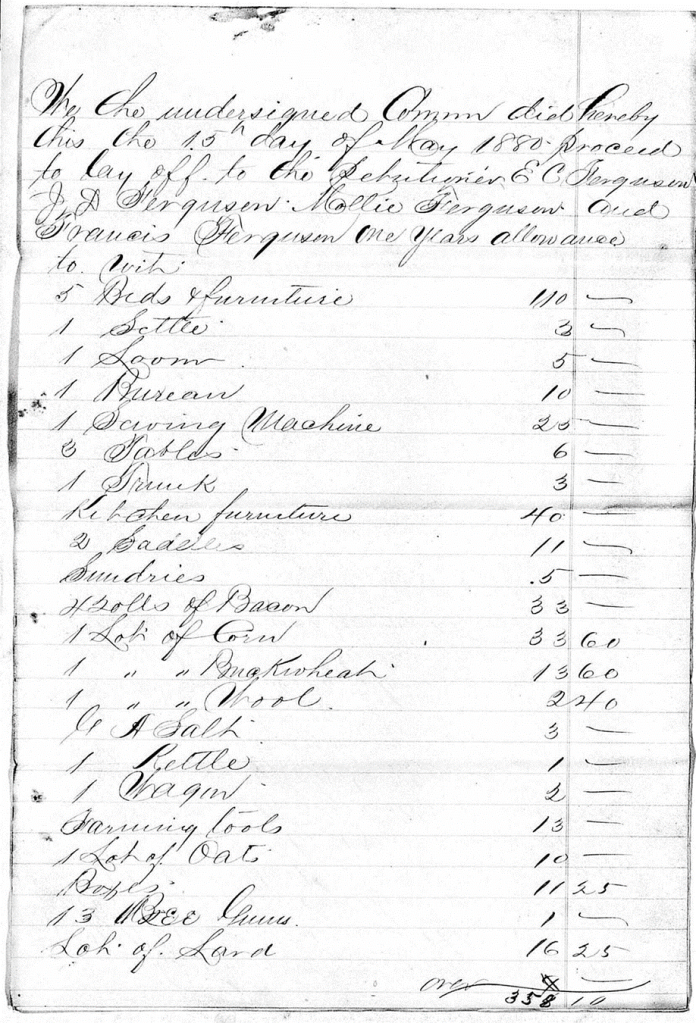 We the undersigned Comm did hereby
this the 15th day of May 1880 proceed
to lay off to the Petitioner E C Ferguson
J. D Ferguson Mollie Ferguson and
Francis Ferguson one years allowance
to wit
5 Beds & furniture 110 —
1 Settle 3 —
1 Loom 5 —
1 Bureau 10 —
1 Sewing Machine 25 —
3 Tables 6 —
1 Trunk 3 —
Kitchen furniture 40 —
2 Saddles 11 —
Sundries .5 —
of Bacon 33 —
1 Lot of Corn 33 60
1 " " Buckwheat 13 60
1 " " Wool 2 40
Salt 3 —
1 Kettle 1 —
1 Wagon 2 —
Farming tools 13 —
1 Lot of Oats 10 —
11 25
13 Bee Gums 1 —
Lot of Lard 16 25
over 358 10